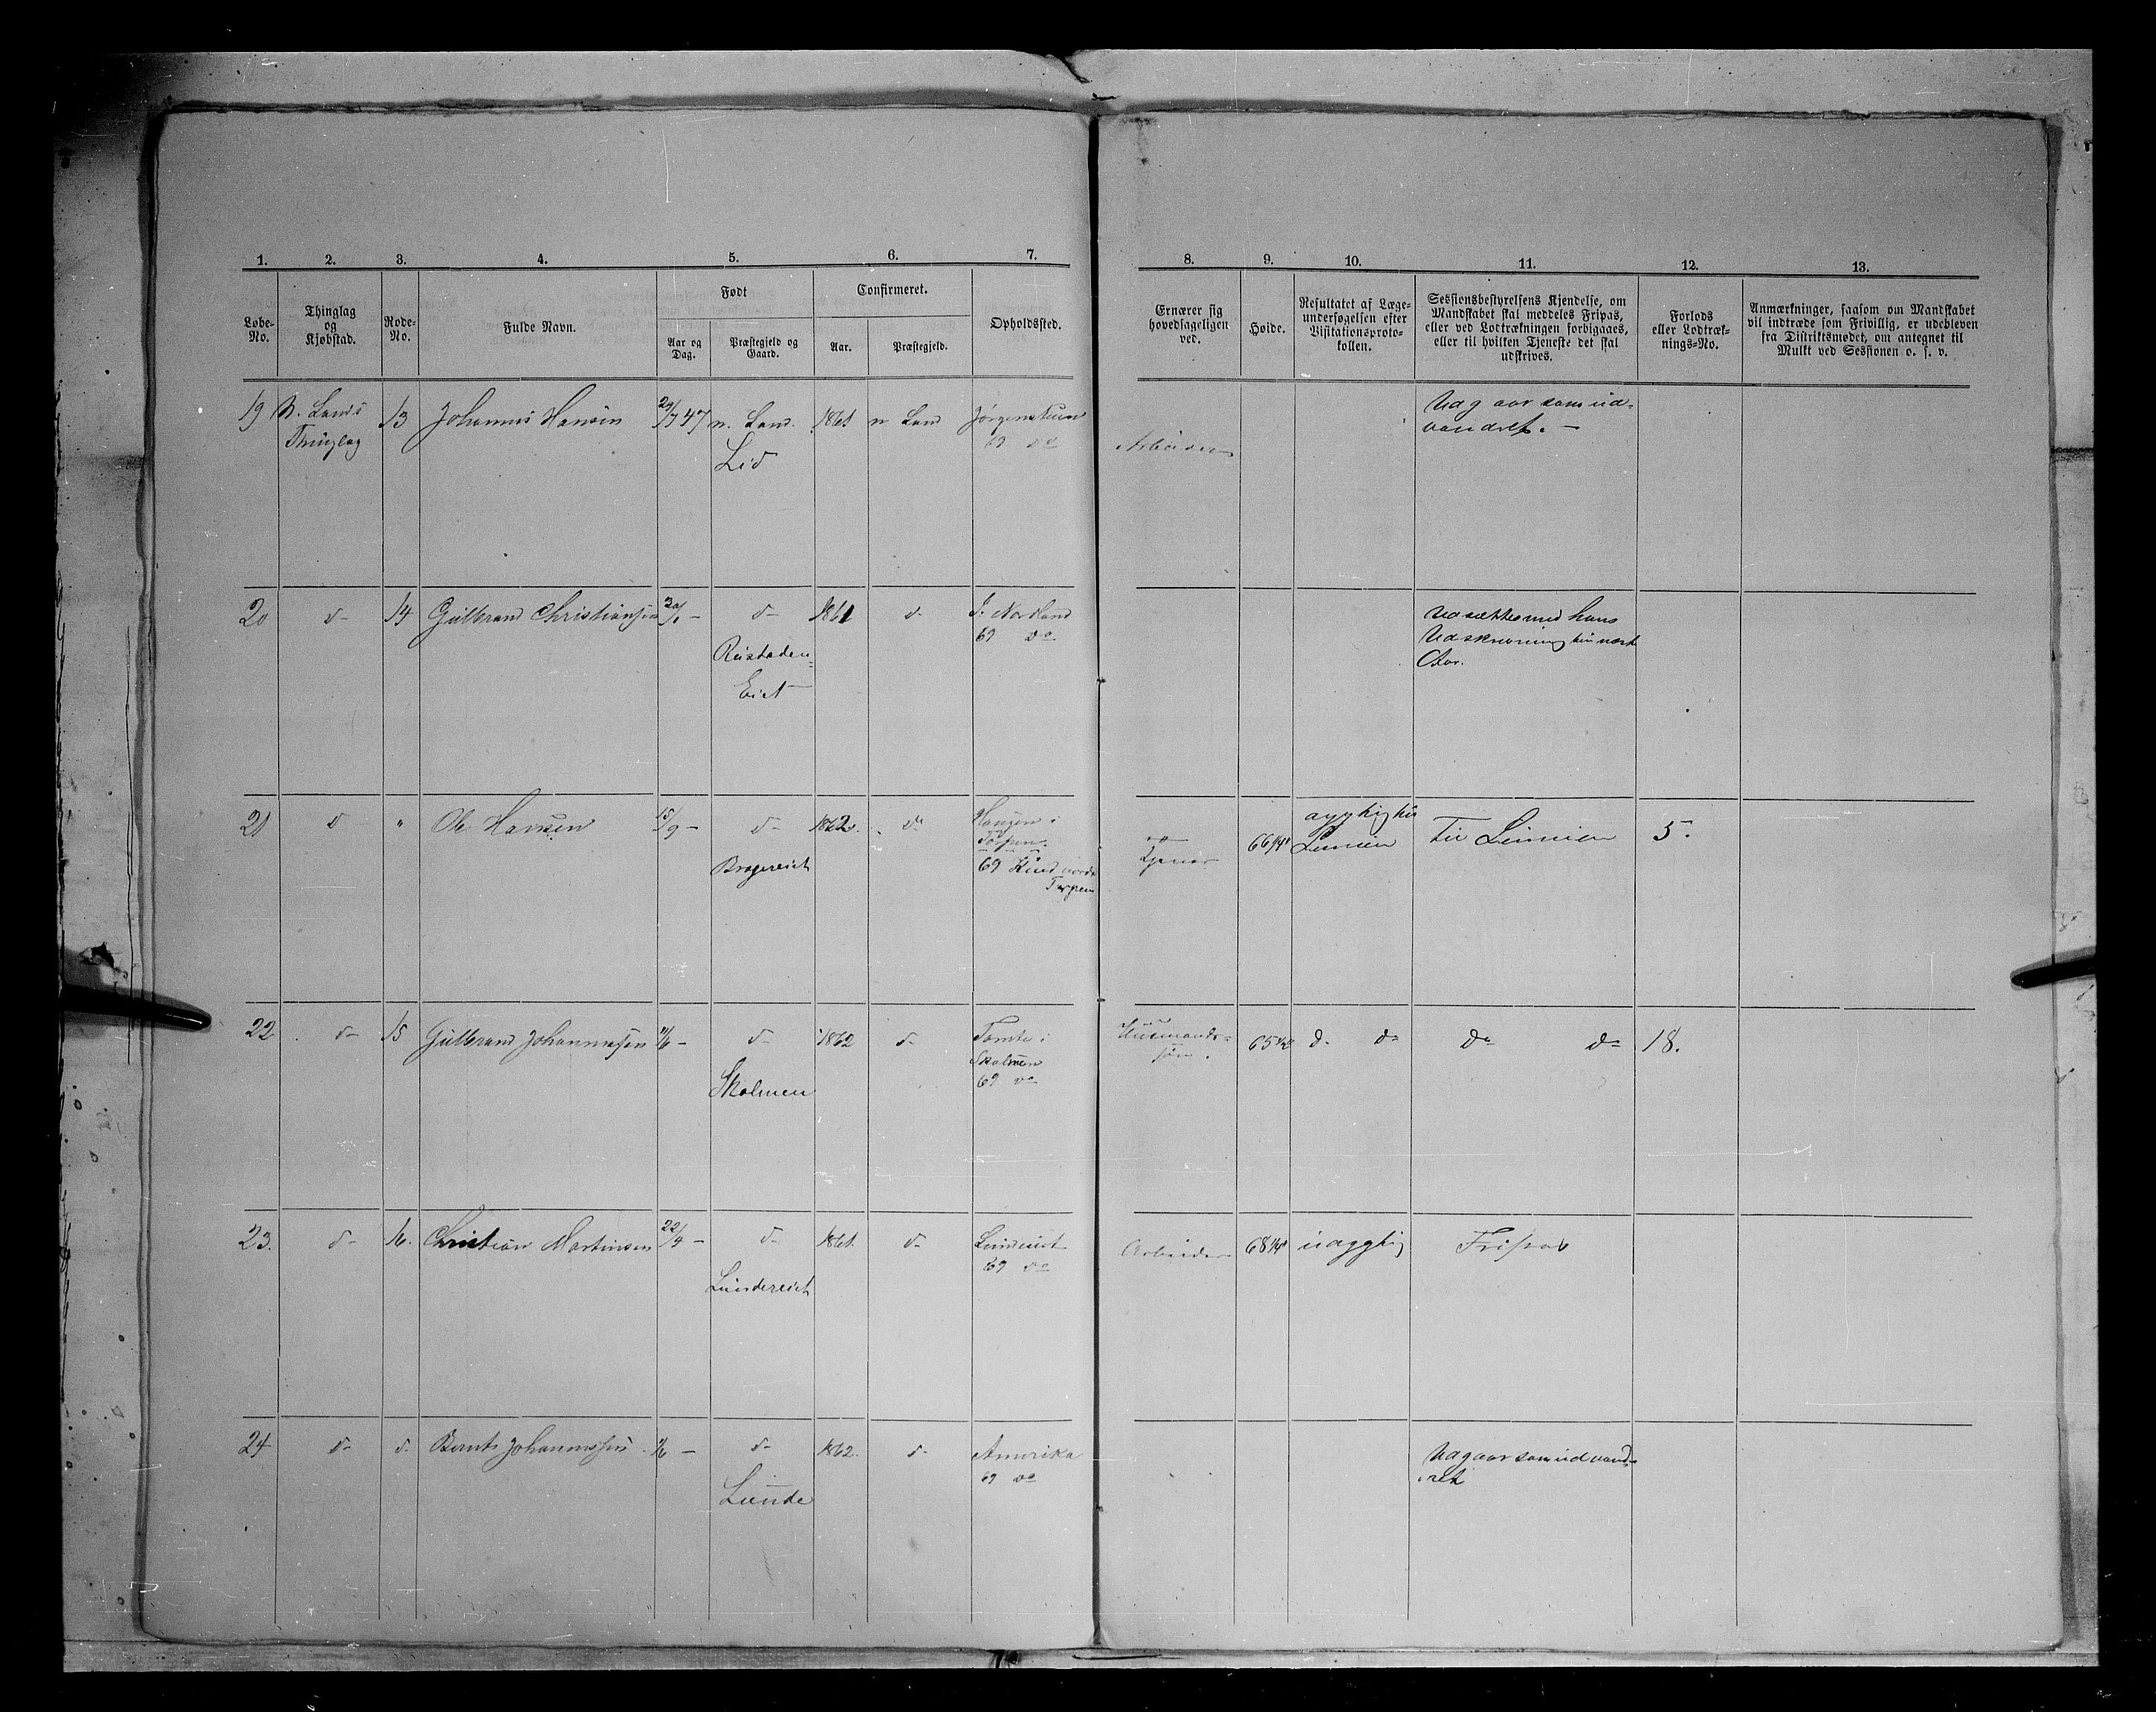 1. 2. 3. 4. 5. 6. 7. 8. 9. 10. 11. 12. 13.
Løbe-No.
Thinglag og Kjøbstad.
Rode-No.
Fulde Navn.
Født
Aar og Dag.
Præstegjeld og Gaard.
Confirmeret.
Aar.
Præstegjeld.
Opholdssted.
Ernærer sig hovedsageligen ved.
Høide.
Resultatet af Læge-undersøgelsen efter Visitationsproto-kollen.
Sessionsbestyrelsens Kjendelse, om Mandskabet skal meddeles Fripas, eller ved Lodtrækningen forbigaaes, eller til hvilken Tjeneste det skal udskrives.
Forlods eller Lodtræk-nings-No.
Anmærkninger, saasom om Mandskabet vil indtræde som Frivillig, er udebleven fra Distriktsmødet, om antegnet til Mulkt ved Sessionen o. s. v.
19 N. Lands 13 Johannes Hansen 29/7 47 n. Land. 1861 n Land Jørgenstuen Udgaar som ud-
Thinglag Lid 69 do Arbeider vandret. —
20 d- 14 Gulbrand Christiansen 20/1 - d- 1861 d- Nordland Udsættes med hans
69 do Udskrivning til næste
Rustaden- Aar.
Eiet
21 d " Ole Hansen 15/9 - d- 1862. do Haugen i 66 1/4" dygtig til Linien Til Linien 5.
Torpen.
Brageeiet 69 nordre
Torpen
22 d- 15 Gulbrand Johannessen 11/6 - d- 1862 d- Tomte i Husmands- 65 1/2" d- do do do 18.
Skolmen søn.
Skolmen 69 do
23. d- 16. Christian Martinsen 22/9 - d- 1861. d- Lundeiet Arbeider 68 1/4" udygtig Fripas
69 do
Lundeeiet
24 d- d- Bernt Johannessen 1/6 - d- 1862. d- Amerika Udgaar som udvand-
69 do ret
Lunde